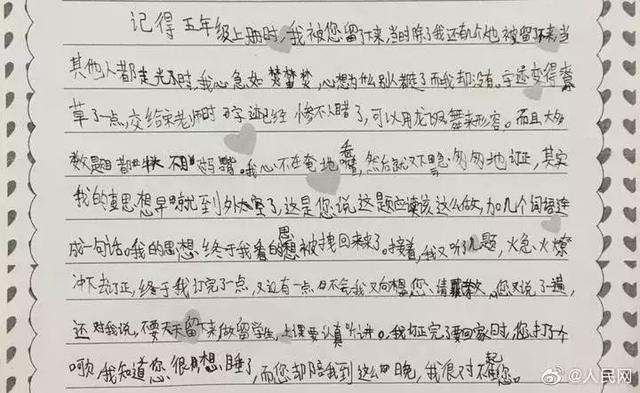 记得五年级上册时，我被您留了下来，当时除了我还有几个也被留下来，当
其他人都走光了时，我心急如焚，心想为什么别人都走了而我却没有。字迹变得
草了一点，交给宋老师时字迹已经惨不人睹了，可以用龙飞凤舞来形容。而且大多
数题目都我心不在焉地，然后就又下匆匆地订正，其实
我的真思想早就到外太空了，这是您说这题应该这么做，加几个词语连
成一句话。我的思想终于被拽回来了。接着，我又听了几题，火急火燎
冲下去订正，终于我订完了一点，又还有一点不会我又向您请教，您又说了一遍，
还对我说，不要天天留下来做留学生，上课要认真听讲。我订正完了要回家时，您打了个
哈欠，我知道您很想睡了，而您却陪我到这么晚，我很对不起您。
@人民网